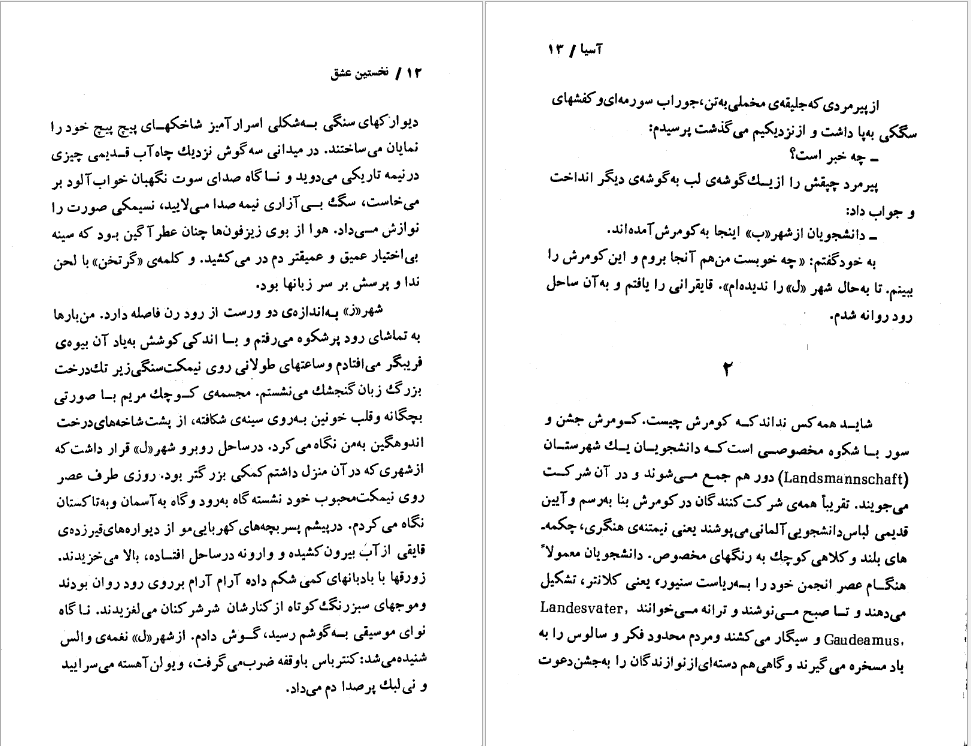 ۱۲ / نخستین عشق
دیوارکهای سنگی به‌شکلی اسرارآمیز شاخکهای پیچ پیچ خود را
نمایان می‌ساختند. در میدانی سه‌گوش نزدیك چاه‌آب قدیمی چیزی
درنیمه تاریکی می‌دوید و ناگاه صدای سوت نگهبان خواب‌آلود بر
می‌خاست، سگ بی‌آزاری نیمه صدا می‌لایید، نسیمکی صورت را
نوازش می‌داد. هوا از بوی زیزفون‌ها چنان عطرآگین بود که سینه
بی‌اختیار عمیق و عمیقتر دم در می‌کشید. و کلمه‌ی «گرتخن» با لحن
ندا و پرسش بر سر زبانها بود.
شهر«ز» به‌اندازه‌ی دو ورست از رود رن فاصله دارد. من‌بارها
به تماشای رود پرشکوه می‌رفتم و با اندکی کوشش به‌یاد آن بیوه‌ی
فریبگر می‌افتادم وساعتهای طولانی روی نیمکت‌سنگی‌زیر تك‌درخت
بزرگ زبان گنجشك می‌نشستم. مجسمه‌ی کوچك مریم با صورتی
بچگانه وقلب خونین به‌روی سینه‌ی شکافته، از پشت‌شاخه‌های‌درخت
اندوهگین به‌من نگاه می‌کرد. درساحل روبرو شهر«ل» قرار داشت‌که
ازشهری که درآن منزل داشتم‌کمکی بزرگتر بود. روزی طرف عصر
روی نیمکت‌محبوب خود نشسته گاه به‌رود وگاه به‌آسمان وبه‌تاکستان
نگاه می‌کردم. درپیشم پسربچه‌های کهربایی‌مو از دیواره‌های‌قیرزده‌ی
قایقی ازآب بیرون‌کشیده و وارونه درساحل افتاده، بالا می‌خزیدند.
زورقها با بادبانهای‌کمی شکم داده آرام آرام برروی رود روان بودند
وموجهای سبزرنگ‌کوتاه ازکنارشان شرشرکنان می‌لغزیدند. ناگاه
نوای موسیقی به‌گوشم رسید، گوش دادم. ازشهر«ل» نغمه‌ی والس
شنیده‌می‌شد: کنترباس باوقفه ضرب‌می‌گرفت، ویولن‌آهسته می‌سرایید
و نی‌لبك پرصدا دم می‌داد.
آسیا / ۱۳
ازپیرمردی‌که‌جلیقه‌ی مخملی‌به‌تن،جوراب سورمه‌ای‌وکفشهای
سگکی به‌پا داشت و ازنزدیکیم می‌گذشت پرسیدم:
ـ چه خبر است؟
پیرمرد چپقش را ازیك‌گوشه‌ی لب به‌گوشه‌ی دیگر انداخت
و جواب داد:
ـ دانشجویان ازشهر«ب» اینجا به‌کومرش‌آمده‌اند.
به خودگفتم: «چه خوبست من‌هم آنجا بروم و این‌کومرش را
ببینم. تا به‌حال شهر «ل» را ندیده‌ام». قایقرانی را یافتم و به‌آن ساحل
رود روانه شدم.
۲
شاید همه‌کس نداندکه کومرش چیست. کومرش جشن و
سور با شکوه مخصوصی است‌که دانشجویان یك شهرستان
(Landsmannschaft) دور هم جمع می‌شوند و در آن شرکت
می‌جویند. تقریباً همه‌ی شرکت‌کنندگان درکومرش بنا به‌رسم وآیین
قدیمی لباس‌دانشجویی‌آلمانی‌می‌پوشند یعنی نیمتنه‌ی هنگری، چکمه‌ـ
های بلند وکلاهی‌کوچك به رنگهای مخصوص. دانشجویان معمولاً
هنگام عصر انجمن خود را به‌ریاست سنیور، یعنی کلانتر، تشکیل
می‌دهند و تا صبح می‌نوشند و ترانه می‌خوانند Landesvater,
Gaudeamus, و سیگار می‌کشند ومردم محدود فکر و سالوس را به
باد مسخره می‌گیرند وگاهی‌هم دسته‌ای‌ازنوازندگان را به‌جشن‌دعوت